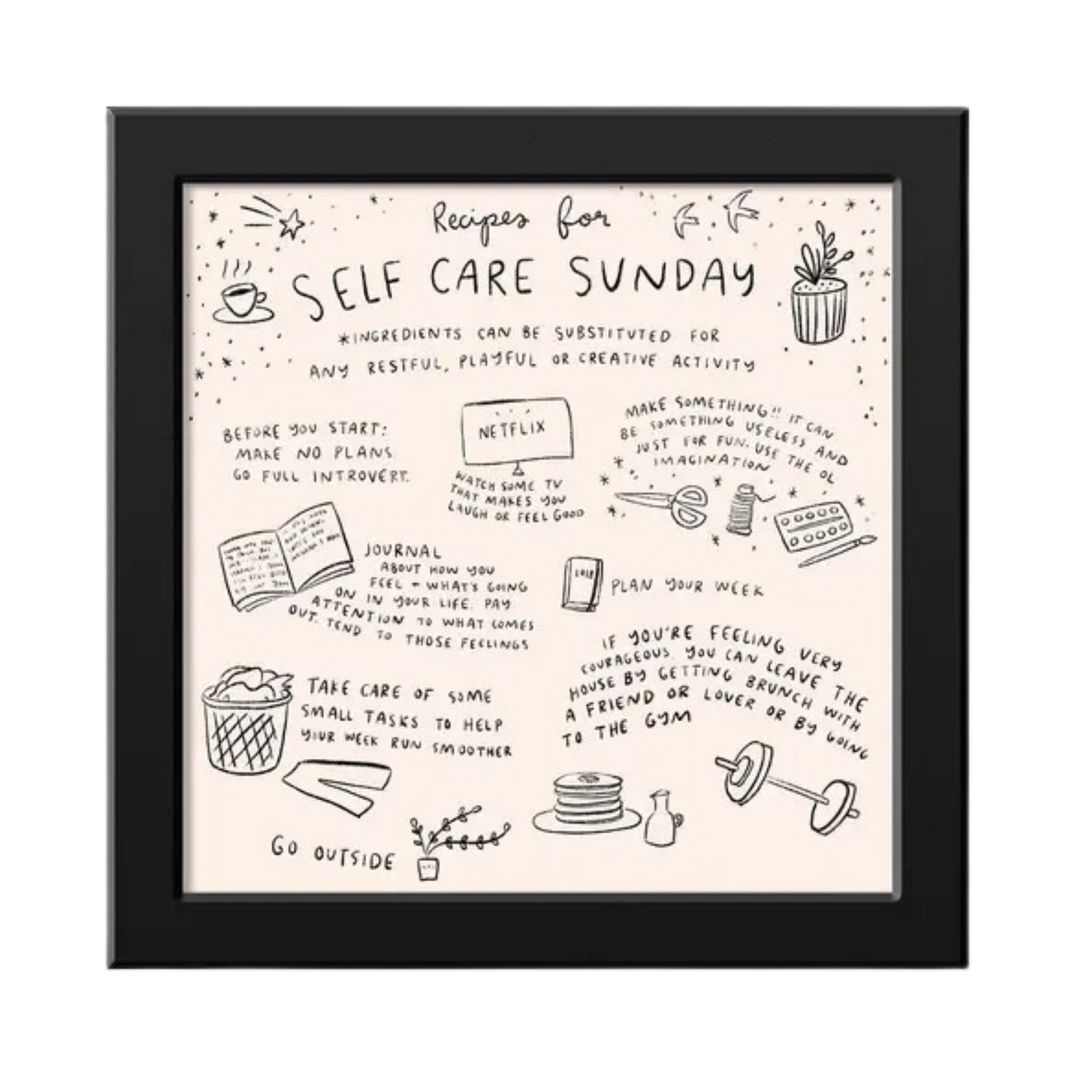 Recipes for
SELF CARE SUNDAY
*INGREDIENTS CAN BE SUBSTITUTED FOR
ANY RESTFUL, PLAYFUL OR CREATIVE ACTIVITY
BEFORE YOU START:
MAKE NO PLANS.
GO FULL INTROVERT.
NETFLIX
WATCH SOME TV
THAT MAKES YOU
LAUGH OR FEEL GOOD
MAKE SOMETHING!! IT CAN
BE SOMETHING USELESS AND
JUST FOR FUN. USE THE OL
IMAGINATION
JOURNAL
ABOUT HOW YOU
FEEL + WHAT'S GOING
ON IN YOUR LIFE. PAY
ATTENTION TO WHAT COMES
OUT. TEND TO THOSE FEELINGS
PLAN YOUR WEEK
TAKE CARE OF SOME
SMALL TASKS TO HELP
YOUR WEEK RUN SMOOTHER
IF YOU'RE FEELING VERY
COURAGEOUS. YOU CAN LEAVE THE
HOUSE BY GETTING BRUNCH WITH
A FRIEND OR LOVER OR BY GOING
TO THE GYM
GO OUTSIDE